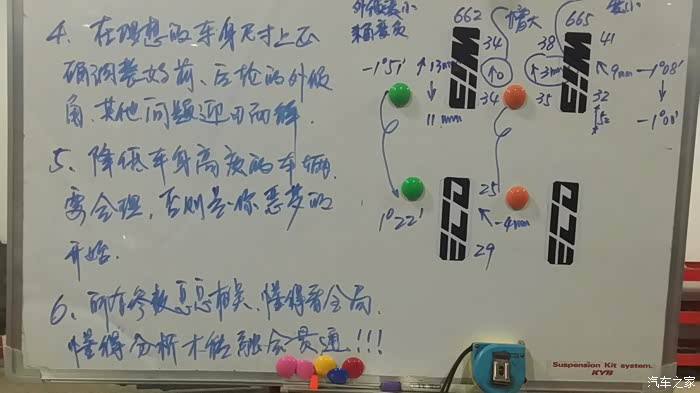 4、在理想的车身尺寸上正
确调整好前、后轮的外倾
角,其他问题迎刃而解.
5、降低车身高度的车辆,
要合理,否则是你恶梦的
开始.
6、所有参数息息相关,懂得看全局,
懂得分析才能融会贯通!!!
662 增大 665
34 38 41
-1°51' ↑13mm ↑0 ↑3mm 9mm -1°08'
34 35 32
11mm 52 -1°08'
25
1°22' -4mm
29
Suspension Kit system.
KYB
汽车之家